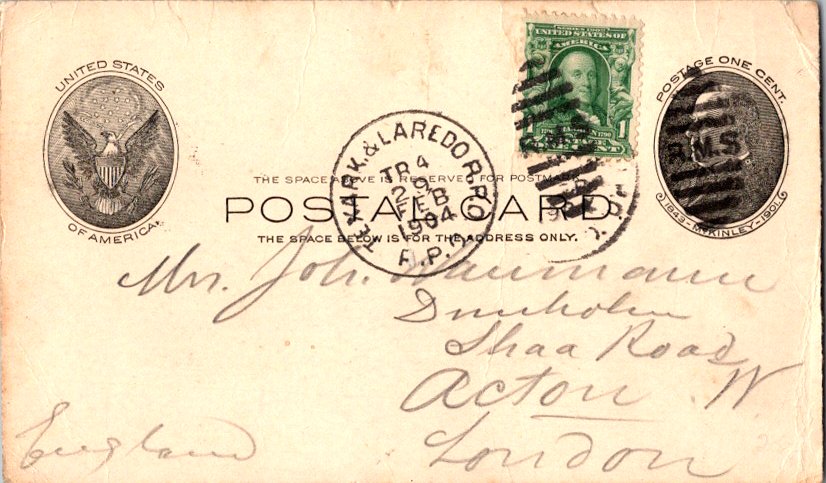 UNITED STATES
OF AMERICA.
SERIES 1902
UNITED STATES OF
AMERICA
1 1
POSTAGE ONE CENT.
R.M.S.
1843-McKINLEY-1901
TEXARK. & LAREDO R.P.O.
TR 4
2 FEB
1904
R.P.O.
THE SPACE ABOVE IS RESERVED FOR POSTMARK.
POSTAL CARD
THE SPACE BELOW IS FOR THE ADDRESS ONLY.
Mrs. Joh. Naumann
Dunholm
Shaa Road
Acton W
London
England